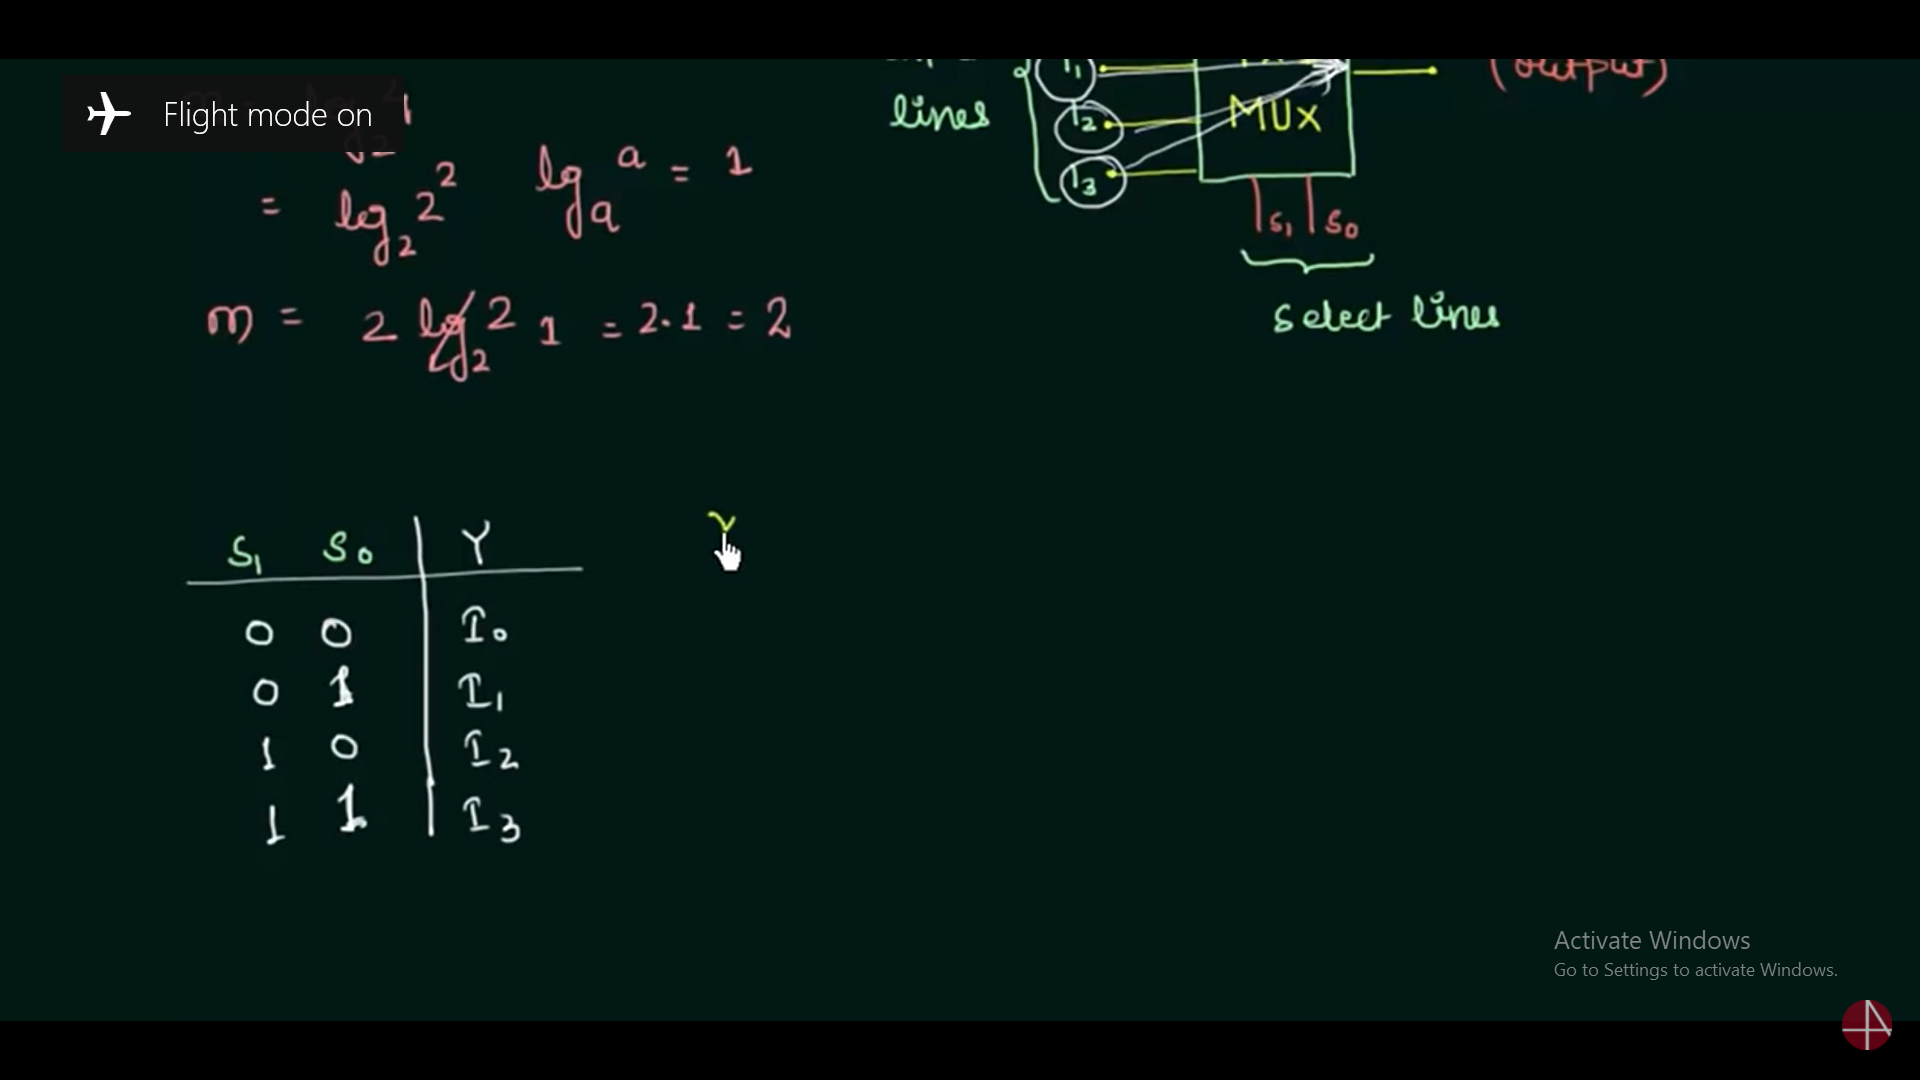 Flight mode on
= log₂ 2² logₐ a = 1
m = 2 log₂ 2 1 = 2.1 = 2
lines
I₁
I₂
I₃
MUX
(output)
S₁ S₀
select lines
S₁ S₀ Y
0 0 I₀
0 1 I₁
1 0 I₂
1 1 I₃
Activate Windows
Go to Settings to activate Windows.